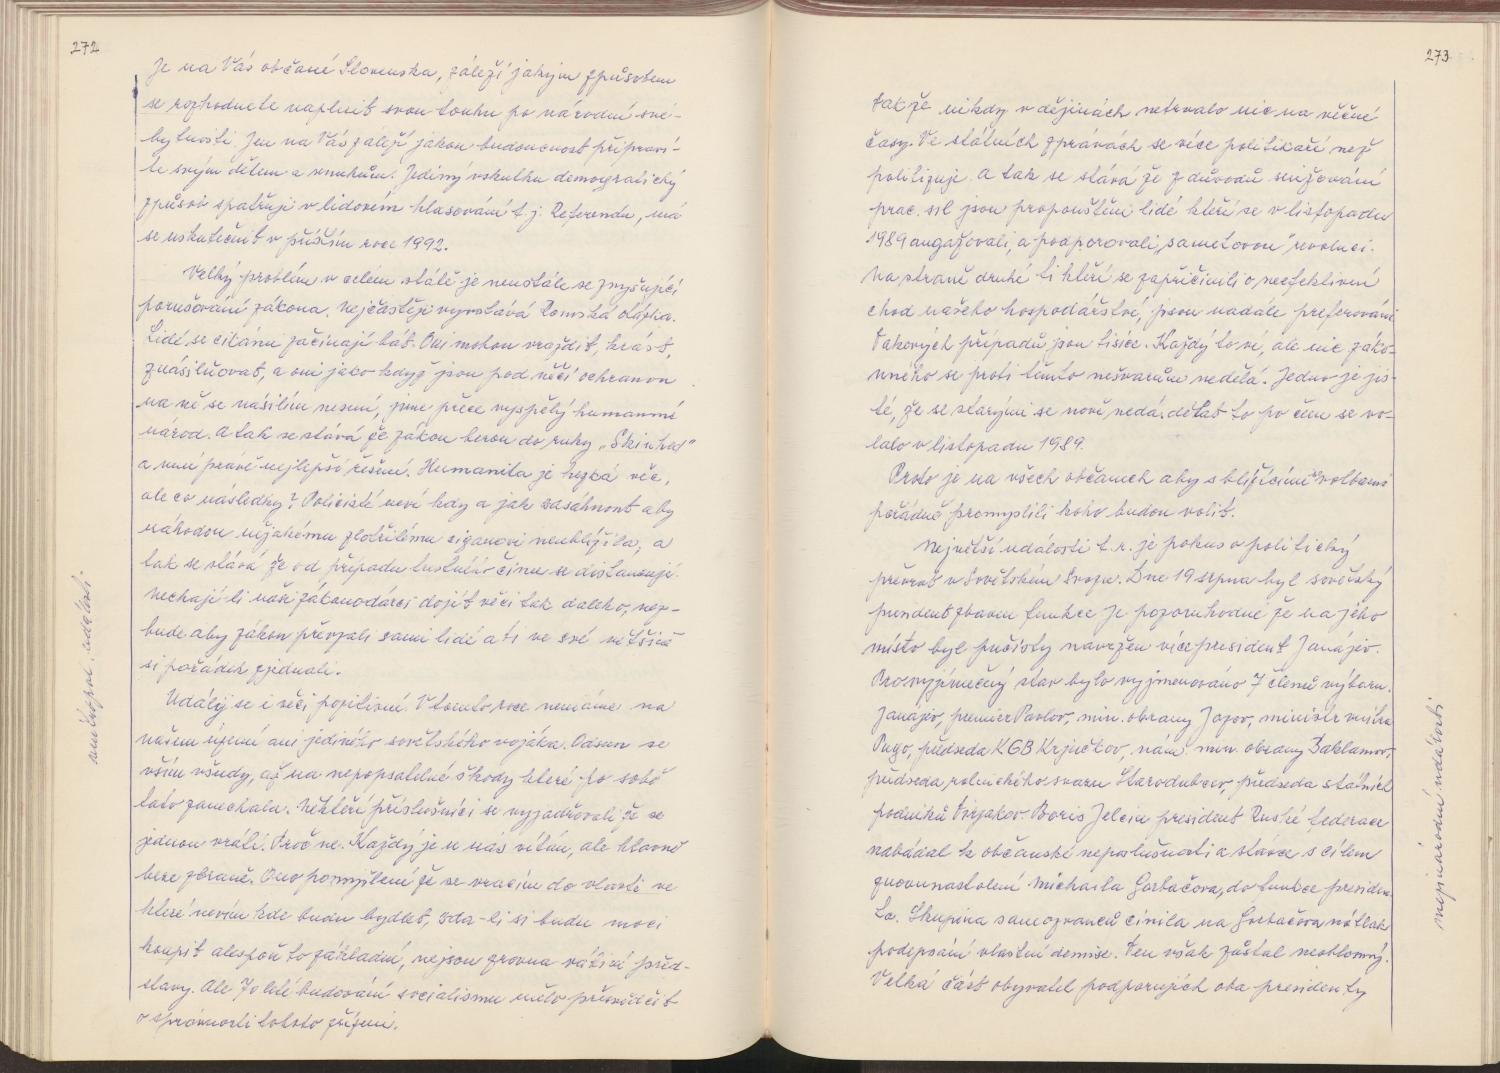 272
je na Vás občané Slovenska, záleží jakým způsobem
se rozhodnete naplnit svou touhu po národní své-
bytnosti. Jen na Vás záleží jakou budoucnost připraví-
te svým dětem a vnukům. Jediný vskutku demografický
způsob spatřuji v lidovém hlasování t.j. Referendu, má
se uskutečnit v příštím roce 1992.
Velký problém v celém státě je neustále se zvyšující
porušování zákona. Nejčastěji vyvstává Romská otázka.
Lidé se cikánů začínají bát. Oni mohou vraždit, krást,
znásilňovat, a oni jako když jsou pod něčí ochranou
na ně se násilím nesmí, jsme přece vyspělý humanní
národ. A tak se stává že zákon berou do ruky „Skinhed"
a není právě nejlepší řešení. Humanita je hezká věc,
ale co následky? Policisté neví kdy a jak zasáhnout aby
náhodou nějakému zlotřilému ciganovi neublížila, a
tak se stává že od případu trestního činu se distancují.
Nechají-li naši zákonodárci dojít věci tak daleko, nez-
bude aby zákon převzali sami lidé a ti ve své většině
si pořádek zjednali.
Udály se i věci pozitivní. V tomto roce nemáme na
našem území ani jediného sovětského vojáka. Odsun se
vším všudy, až na nepopsatelné škody které po sobě
tato zanechala. Někteří příslušníci se vyjadřovali že se
jednou vrátí. Proč ne. Každý je u nás vítán, ale hlavně
beze zbraně. Ono pomyšlení že se vracím do vlasti ve
které nevím kde budu bydlet, zda-li si budu moci
koupit alespoň to základní, nejsou zrovna vábivé před-
stavy. Ale 70 leté budování socialismu mělo přesvědčit
o správnosti tohoto zřízení.
vnitropol. události
273
takže nikdy v dějinách netrvalo nic na věčné
časy. Ve státních zprávách se více politikaří než
politizuje. A tak se stává že z důvodů snižování
prac. sil jsou propouštěni lidé kteří se v listopadu
1989 angažovali, a podporovali „sametovou" revoluci.
Na straně druhé ti kteří se zapříčinili o neefektivní
chod našeho hospodářství, jsou nadále preferováni
Takových případů jsou tisíce. Každý to ví, ale nic záko-
nného se proti těmto nešvarům nedělá. Jedno je jis-
té, že se starými se nově nedá dělat to po čem se vo-
lalo v listopadu 1989.
Proto je na všech občanech aby s blížícími se volbami
pořádně promysleli koho budou volit.
Největší událostí t.r. je pokus o politický
převrat v Sovětském Svazu. Dne 19 srpna byl sovětský
president zbaven funkce. Je pozoruhodné že na jeho
místo byl pučisty navržen vícepresident Janájev.
Pro vyjímečný stav bylo vyjmenováno 7 členů výboru.
Janajev, premier Pavlov, min. obrany Jazov, ministr vnitra
Pugo, předseda KGB Krjučkov, nám. min. obrany Baklanov,
předseda rolnického svazu Starodubcev, předseda státních
podniků Tizjakov. Boris Jelcin president Ruské federace
nabádal k občanské neposlušnosti a stávce s cílem
znovunastolení Michaila Gorbačova, do funkce presiden-
ta. Skupina samozvanců činila na Gorbačova nátlak
podepsání vlastní demise. Ten však zůstal neoblomný.
Velká část obyvatel podporujích oba presidenty
mezinárodní události